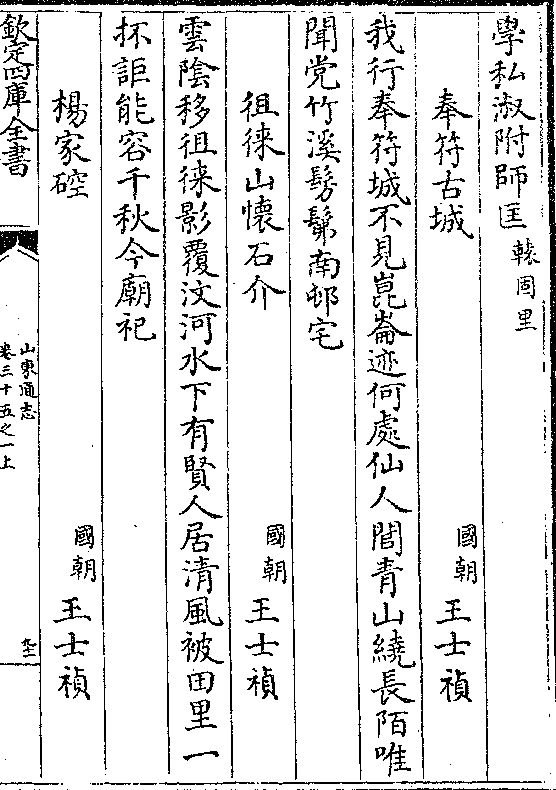 學私淑附師匡轅固里
奉符古城 國朝王士禎
我行奉符城不見崑崙迹何處仙人閭青山繞長陌唯
聞党竹溪髣髴南邨宅
徂徠山懷石介 國朝王士禎
雲陰移徂徠影覆汶河水下有賢人居清風被田里一
抔詎能容千秋今廟祀
楊家硿 國朝王士禎
欽定四庫全書 山東通志卷三十五之一上